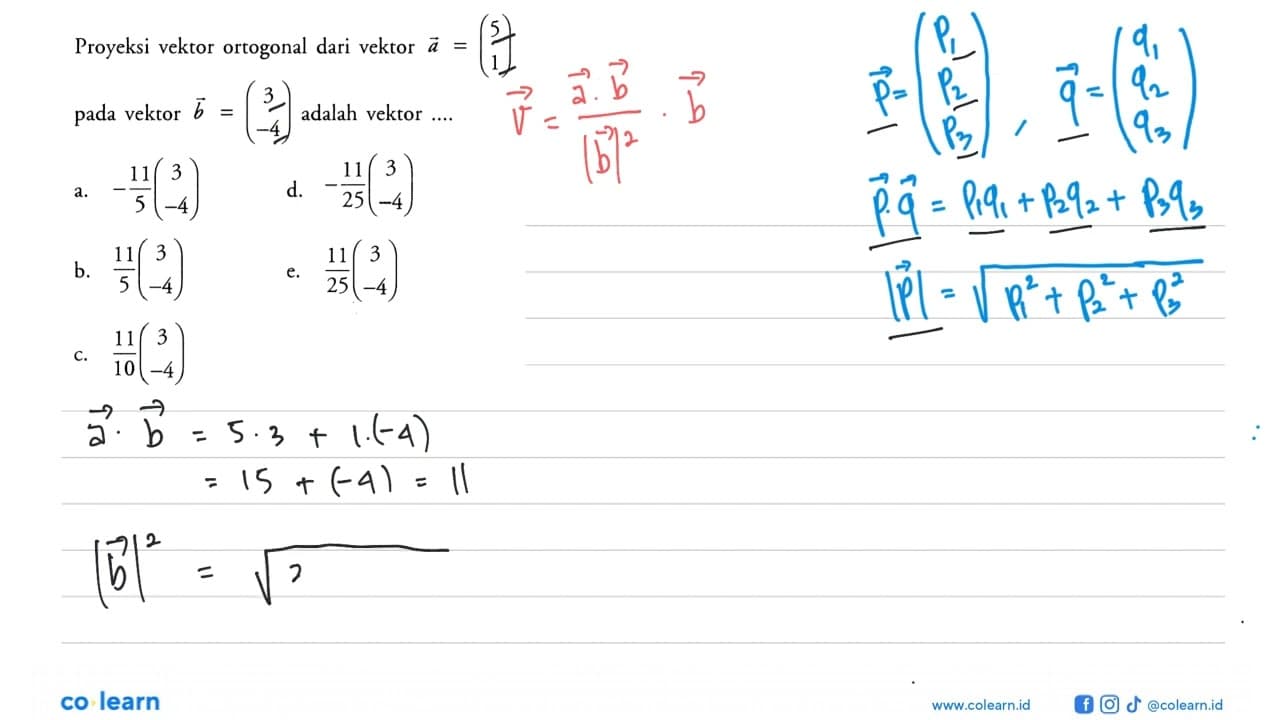 Proyeksi vektor ortogonal dari vektor $\vec{a} = \begin{pmatrix} 5 \\ 1 \end{pmatrix}$
pada vektor $\vec{b} = \begin{pmatrix} 3 \\ -4 \end{pmatrix}$ adalah vektor ....
a. $-\frac{11}{5}\begin{pmatrix} 3 \\ -4 \end{pmatrix}$ d. $-\frac{11}{25}\begin{pmatrix} 3 \\ -4 \end{pmatrix}$
b. $\frac{11}{5}\begin{pmatrix} 3 \\ -4 \end{pmatrix}$ e. $\frac{11}{25}\begin{pmatrix} 3 \\ -4 \end{pmatrix}$
c. $\frac{11}{10}\begin{pmatrix} 3 \\ -4 \end{pmatrix}$
$\vec{v} = \frac{\vec{a} \cdot \vec{b}}{|\vec{b}|^2} \cdot \vec{b}$
$\vec{p} = \begin{pmatrix} p_1 \\ p_2 \\ p_3 \end{pmatrix}, \vec{q} = \begin{pmatrix} q_1 \\ q_2 \\ q_3 \end{pmatrix}$
$\vec{p} \cdot \vec{q} = p_1q_1 + p_2q_2 + p_3q_3$
$|\vec{p}| = \sqrt{p_1^2 + p_2^2 + p_3^2}$
$\vec{a} \cdot \vec{b} = 5 \cdot 3 + 1 \cdot (-4)$
$= 15 + (-4) = 11$
$|\vec{b}|^2 = \sqrt{\phantom{3}}$
co learn
www.colearn.id @colearn.id